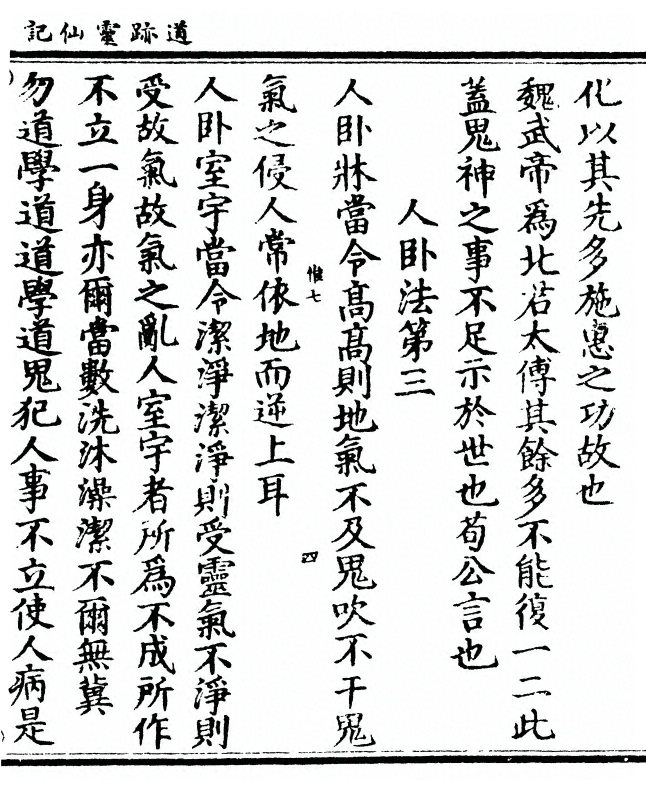 道跡靈仙記
化以其先多施惠之功故也
魏武帝爲北君太傅其餘多不能復一二此
蓋鬼神之事不足示於世也荀公言也
人卧法第三
人卧牀當令高高則地氣不及鬼吹不干鬼
惟七
四
氣之侵人常依地而逆上耳
人卧室宇當令潔淨潔淨則受靈氣不淨則
受故氣故氣之亂人室宇者所爲不成所作
不立一身亦爾當數洗沐澡潔不爾無冀
勿道學道道學道鬼犯人事不立使人病是